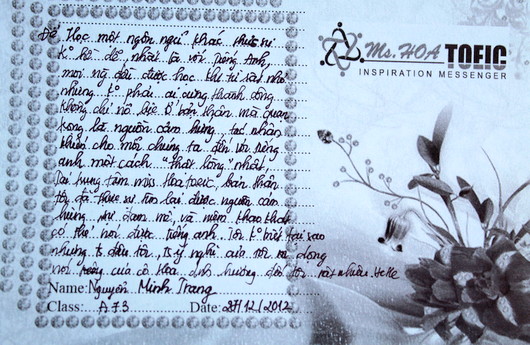 Để học một ngôn ngữ khác thực sự
k hề dễ, nhất là với tiếng Anh,
mọi ng đều được học khi từ rất nhỏ
nhưng k phải ai cũng thành công
không chỉ nỗ lực từ bản thân mà quan
trọng là nguồn cảm hứng, tác nhân
khiến cho mỗi chúng ta đến với tiếng
anh một cách "thật lòng" nhất,
Tại trung tâm miss Hoa toeic, bản thân
tôi đã thực sự tìm lại được nguồn cảm
hứng, sự đam mê, và niềm khao khát
có thể nói được tiếng anh. Tôi k biết tại sao
nhưng từ đầu tôi, ý nghĩ của tôi và dòng
nói của cô Hoa, ảnh hưởng đến tôi rất nhiều hehe
Name: Nguyễn Minh Trang
Class: A73 Date: 27/12/2012
Ms. HOA TOEIC
INSPIRATION MESSENGER